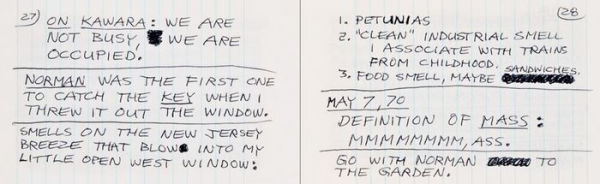 27) ON KAWARA: WE ARE
NOT BUSY, WE ARE
OCCUPIED.
NORMAN WAS THE FIRST ONE
TO CATCH THE KEY WHEN I
THREW IT OUT THE WINDOW.
SMELLS ON THE NEW JERSEY
BREEZE THAT BLOW INTO MY
LITTLE OPEN WEST WINDOW:
(28
1. PETUNIAS
2. "CLEAN" INDUSTRIAL SMELL
I ASSOCIATE WITH TRAINS
FROM CHILDHOOD.
3. FOOD SMELL, MAYBE SANDWICHES.
MAY 7, 70
DEFINITION OF MASS:
MMMMMMMM, ASS.
GO WITH NORMAN TO
THE GARDEN.